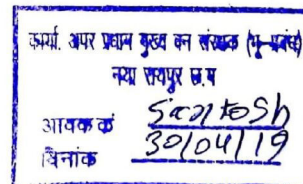 कार्या. अपर प्रधान मुख्य वन संरक्षक (भू-प्रबंध)
नया रायपुर छ.ग
आवक क्रं Santosh
दिनांक 30/04/19